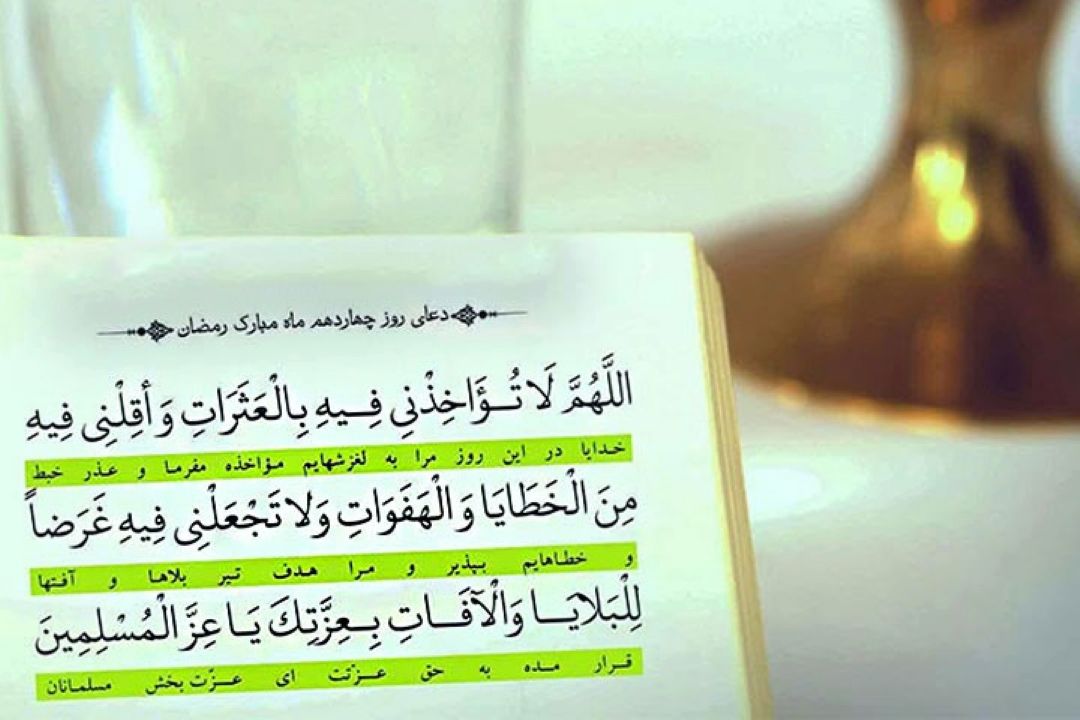 دعای روز چهاردهم ماه مبارک رمضان
اللَّهُمَّ لَا تُؤَاخِذْنِي فِيهِ بِالْعَثَرَاتِ وَ أَقِلْنِی فِيهِ
خدایا در این روز مرا به لغزشهایم مؤاخذه مفرما و عذر خبط
مِنَ الْخَطَايَا وَ الْهَفَوَاتِ وَلا تَجْعَلْنِی فِيهِ غَرَضاً
و خطاهایم بپذیر و مرا هدف تیر بلاها و آفتها
لِلْبَلايَا وَالْآفَاتِ بِعِزَّتِكَ يَا عِزَّ الْمُسْلِمِينَ
قرار مده به حق عزّتت ای عزّت بخش مسلمانان